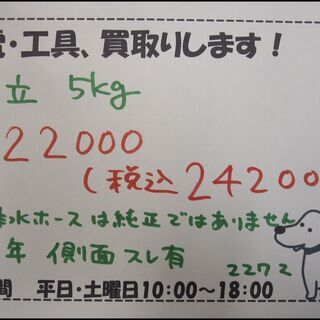 電・工具、買取りします!
立 5kg
22000
(税込24200
水ホースは純正ではありません
年 側面スレ有
2272
間 平日・土曜日10:00~18:00